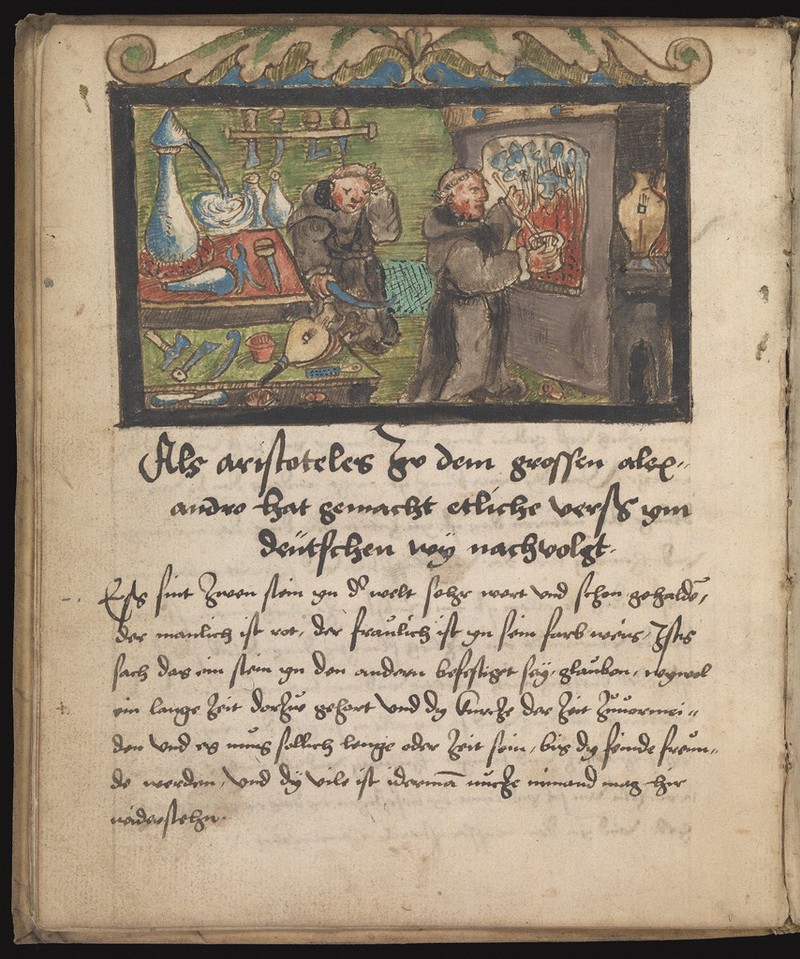 Als aristoteles zu dem grossen alex=
andro hat gemacht etliche verss ym
deutschen wy nachvolgt.
Ess sint zwen stein yn d' welt sehr wert und schon gehaldē,
der manlich ist rot, der fraulich ist yn sein farb weis,
sach das ein stein yn den andern befestiget sey, glauben, wywol
ein lange zeit dorzu gehort und dy kurze der zeit zuvormei=
den und es mus sollich lenge oder zeit sein, bis dy feinde freun=
de werden, und dy vile ist idermā nutze nimand mag hir
widerstehn.